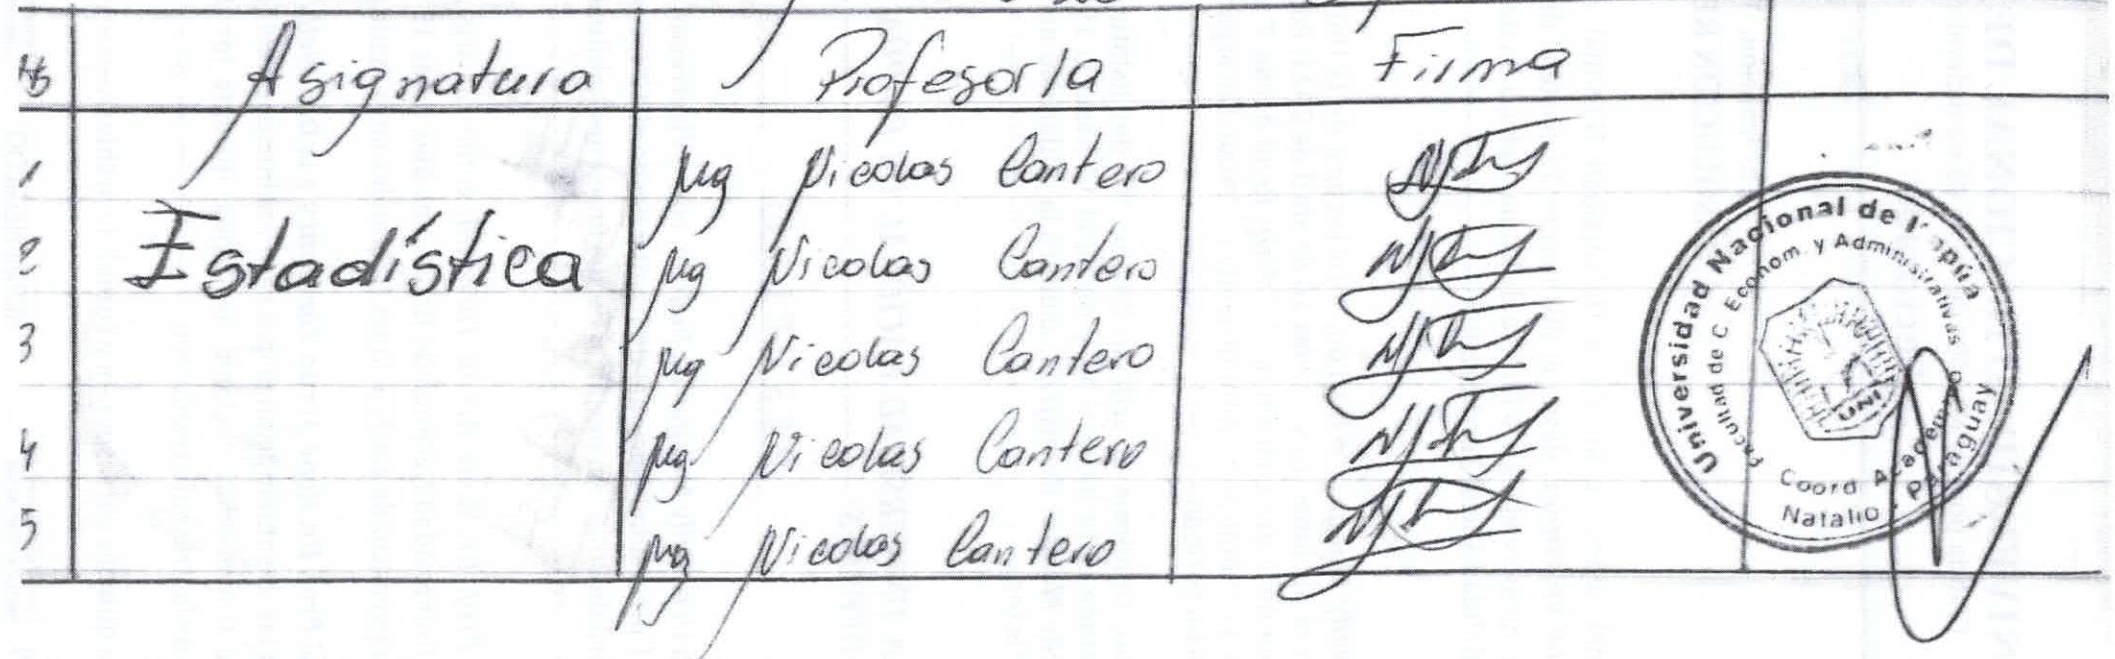 Hs Asignatura Profesor/a Firma
1 Mg Nicolas Cantero
2 Estadística Mg Nicolas Cantero
3 Mg Nicolas Cantero
4 Mg Nicolas Cantero
5 Mg Nicolas Cantero
Universidad Nacional de Itapúa
Facultad de C. Econom. y Administrativas
UNI
Coord. Academica
Natalio - Paraguay